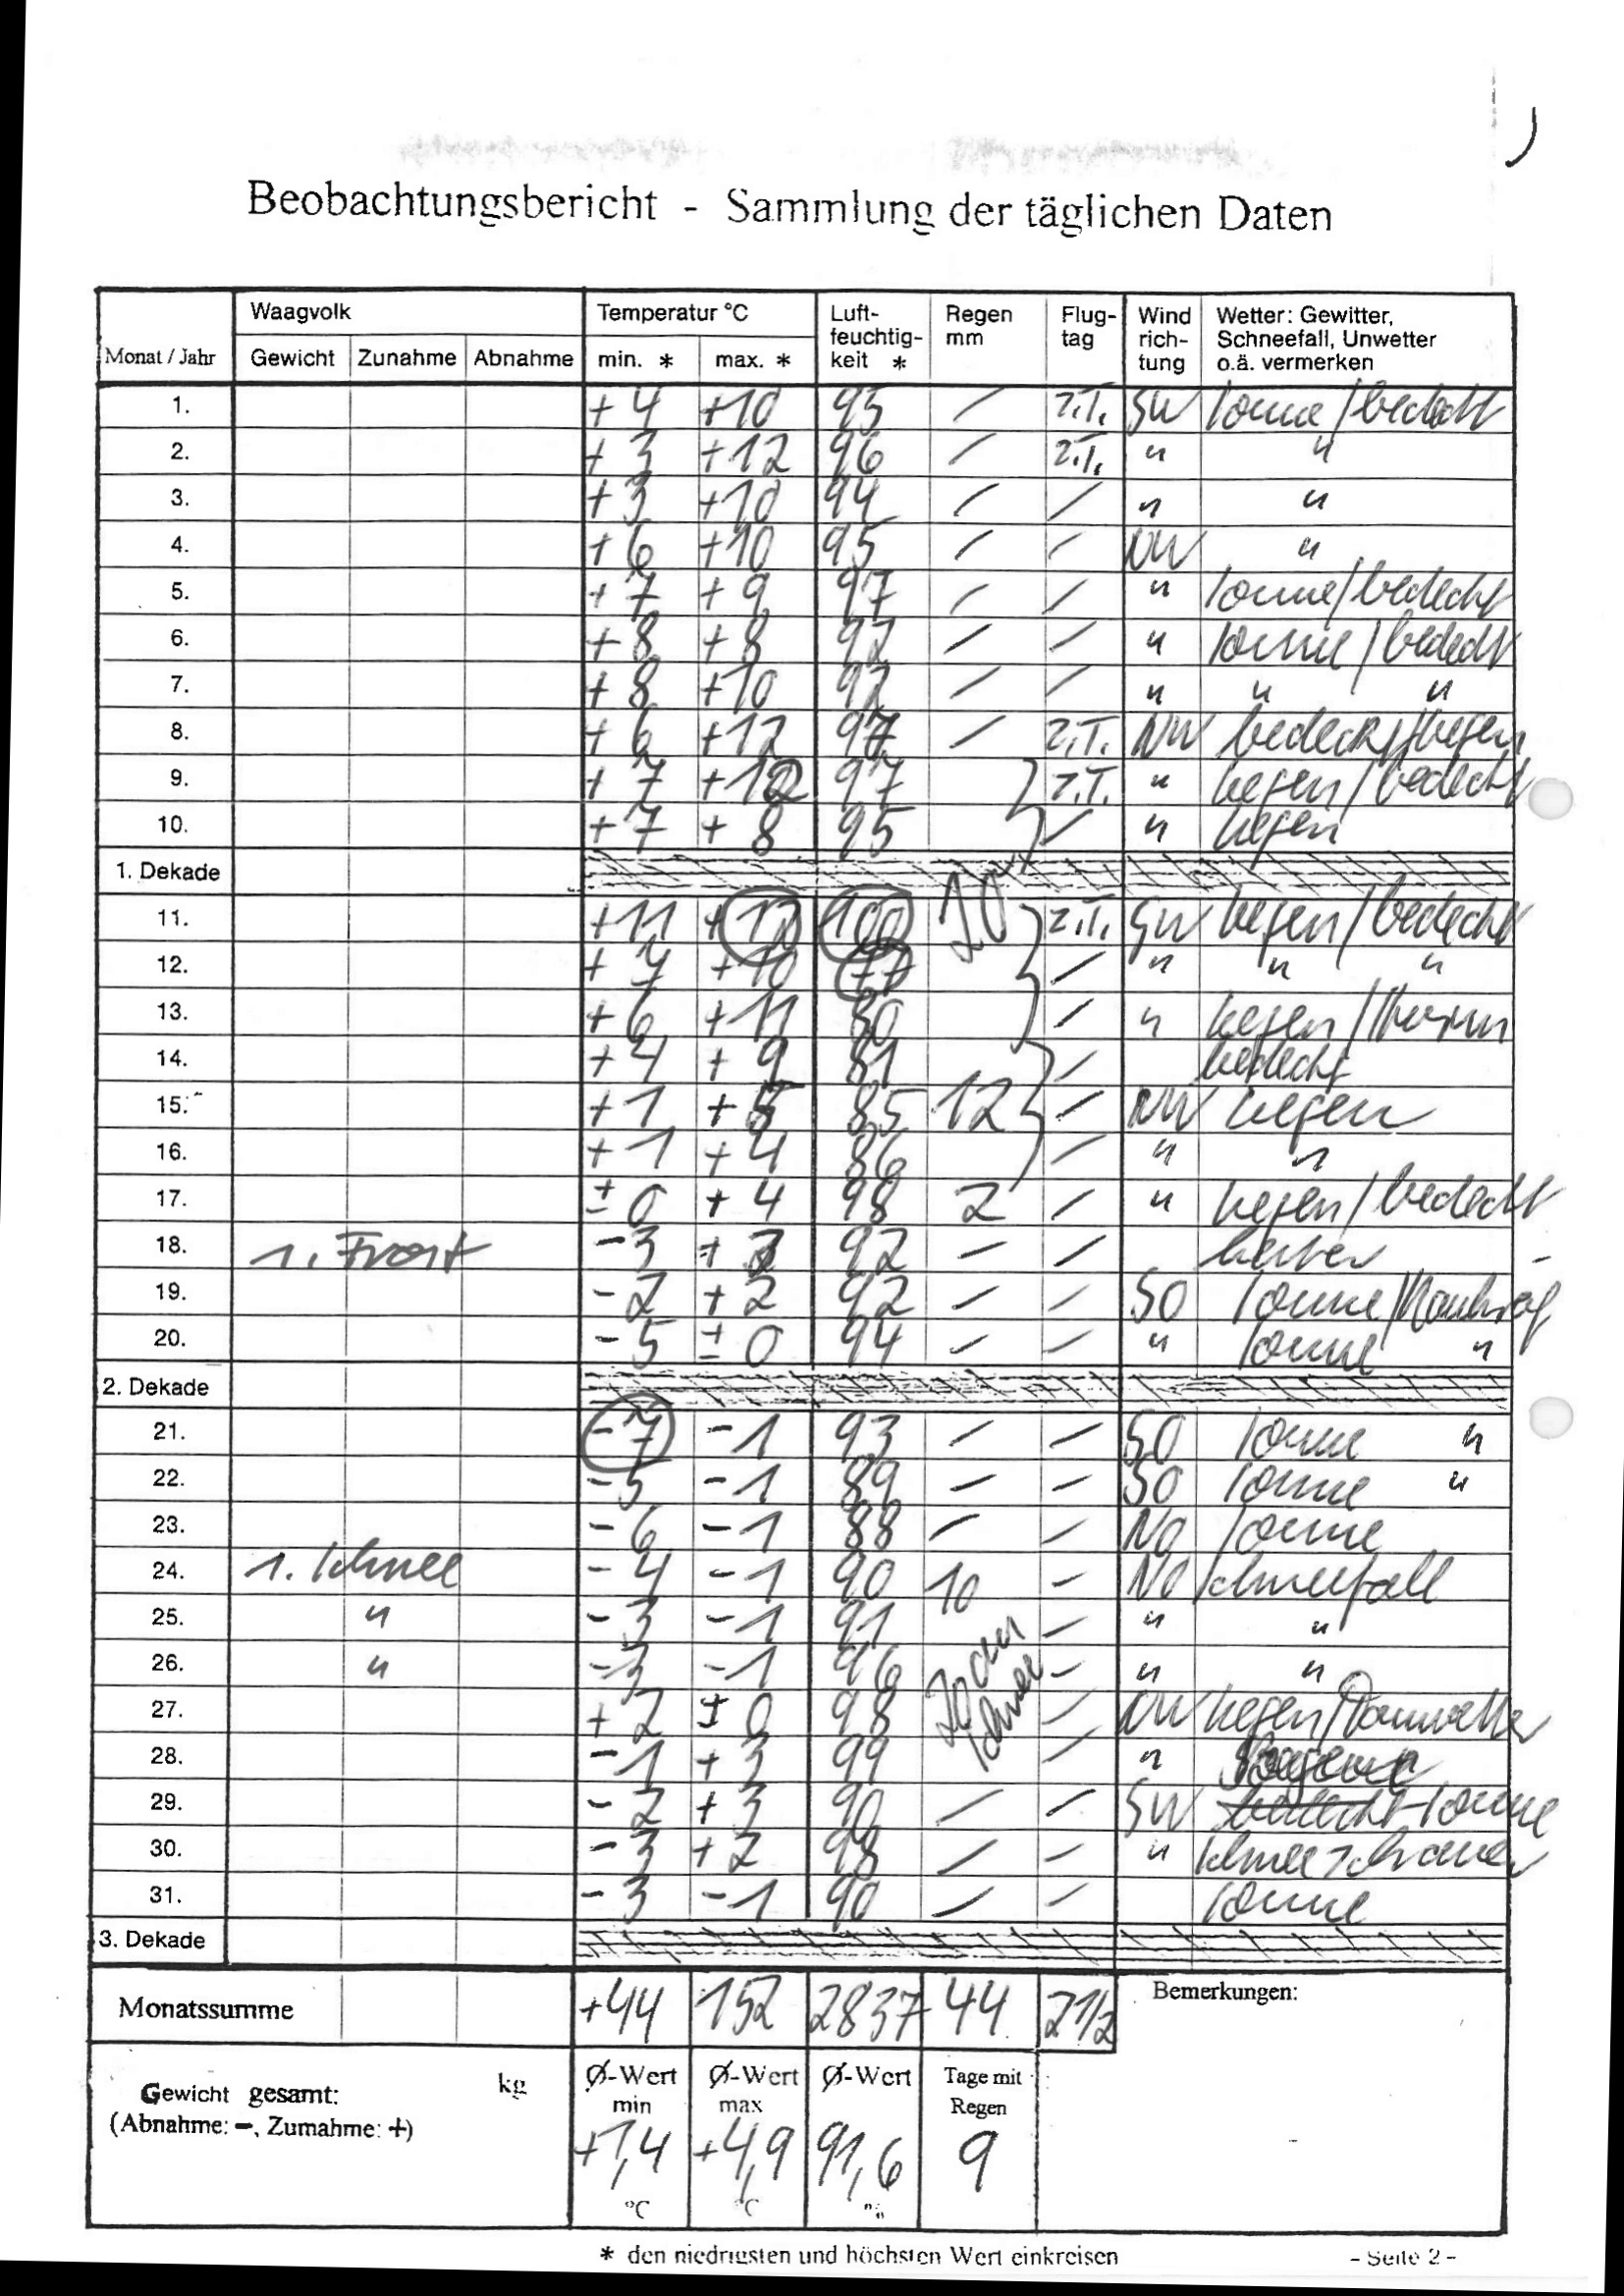 Beobachtungsbericht - Sammlung der täglichen Daten
Monat / Jahr Waagvolk Temperatur °C Luft- Regen Flug- Wind Wetter: Gewitter,
feuchtig- mm tag rich- Schneefall, Unwetter
Gewicht Zunahme Abnahme min. * max. * keit * tung o.ä. vermerken
1. +4 +10 95 / z.T. SW Sonne/bedeckt
2. +3 +12 96 / z.T. " "
3. +3 +10 94 / / " "
4. +6 +10 95 / / NW "
5. +7 +9 97 / / " Sonne/bedeckt
6. +8 +8 92 / / " Sonne/bedeckt
7. +8 +10 92 / / " " "
8. +6 +12 97 / z.T. NW bedeckt/Regen
9. +7 +12 97 z.T. " Regen/bedeckt
10. +7 +8 95 / " Regen
1. Dekade
11. +11 +12 100 20 z.T. SW Regen/bedeckt
12. +7 +10 77 / " " "
13. +6 +11 80 / " Regen/Sturm
14. +4 +9 81 / bedeckt
15. +1 +5 85 12 / NW Regen
16. +1 +4 86 / " "
17. ±0 +4 98 2 / " Regen/bedeckt
18. 1. Frost -3 92 - / heiter
19. -2 +2 92 / / SO Sonne/Rauhreif
20. -5 ±0 94 / / " Sonne "
2. Dekade
21. -7 -1 93 / - SO Sonne "
22. -5 -1 89 - - SO Sonne "
23. -6 -1 88 - - NO Sonne
24. 1. Schnee -4 -1 90 10 - NO Schneefall
25. " -3 -1 91 - " "
26. " -3 -1 96 20 cm Schnee - " "
27. +2 ±0 98 / NW Regen/Tauwetter
28. -1 +3 99 / "
29. -2 +3 90 / / SW bedeckt Sonne
30. -3 +2 98 / - " Schneeschauer
31. -3 -1 90 / / Sonne
3. Dekade
Monatssumme +44 152 2837 44 21/2 Bemerkungen:
Gewicht gesamt: kg Ø-Wert Ø-Wert Ø-Wert Tage mit
(Abnahme: -, Zumahme: +) min max Regen
+1,4 +4,9 91,6 9
°C °C %
* den niedrigsten und höchsten Wert einkreisen - Seite 2 -